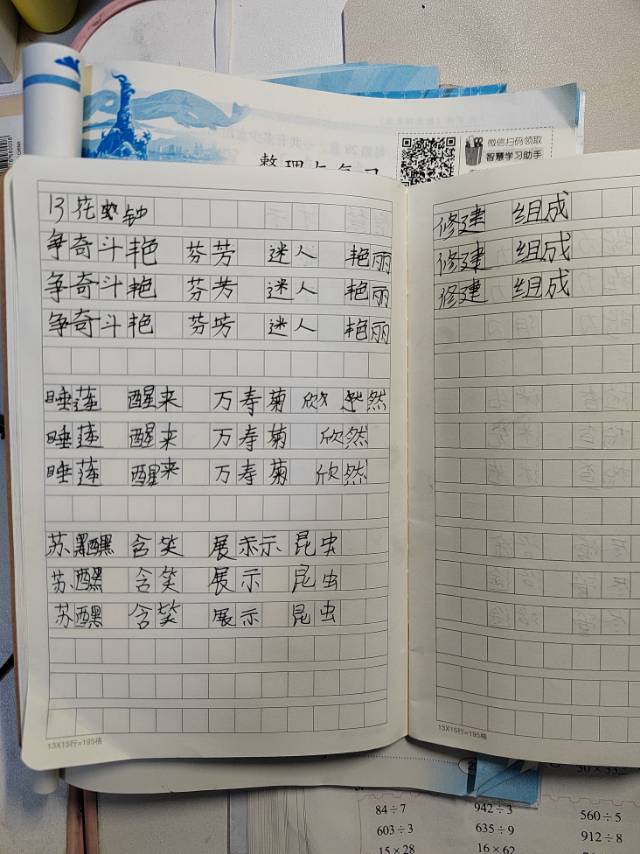 微信扫码领取
智慧学习助手
整理与复习
13花钟
争奇斗艳 芬芳 迷人 艳丽
争奇斗艳 芬芳 迷人 艳丽
争奇斗艳 芬芳 迷人 艳丽
睡莲 醒来 万寿菊 欣然
睡莲 醒来 万寿菊 欣然
睡莲 醒来 万寿菊 欣然
苏醒 含笑 展示 昆虫
苏 含笑 展示 昆虫
苏 含笑 展示 昆虫
13X15行=195格
修建 组成
修建 组成
修建 组成
84÷7 942÷3 560÷5
603÷3 635÷9 912÷8
15×28 16×62